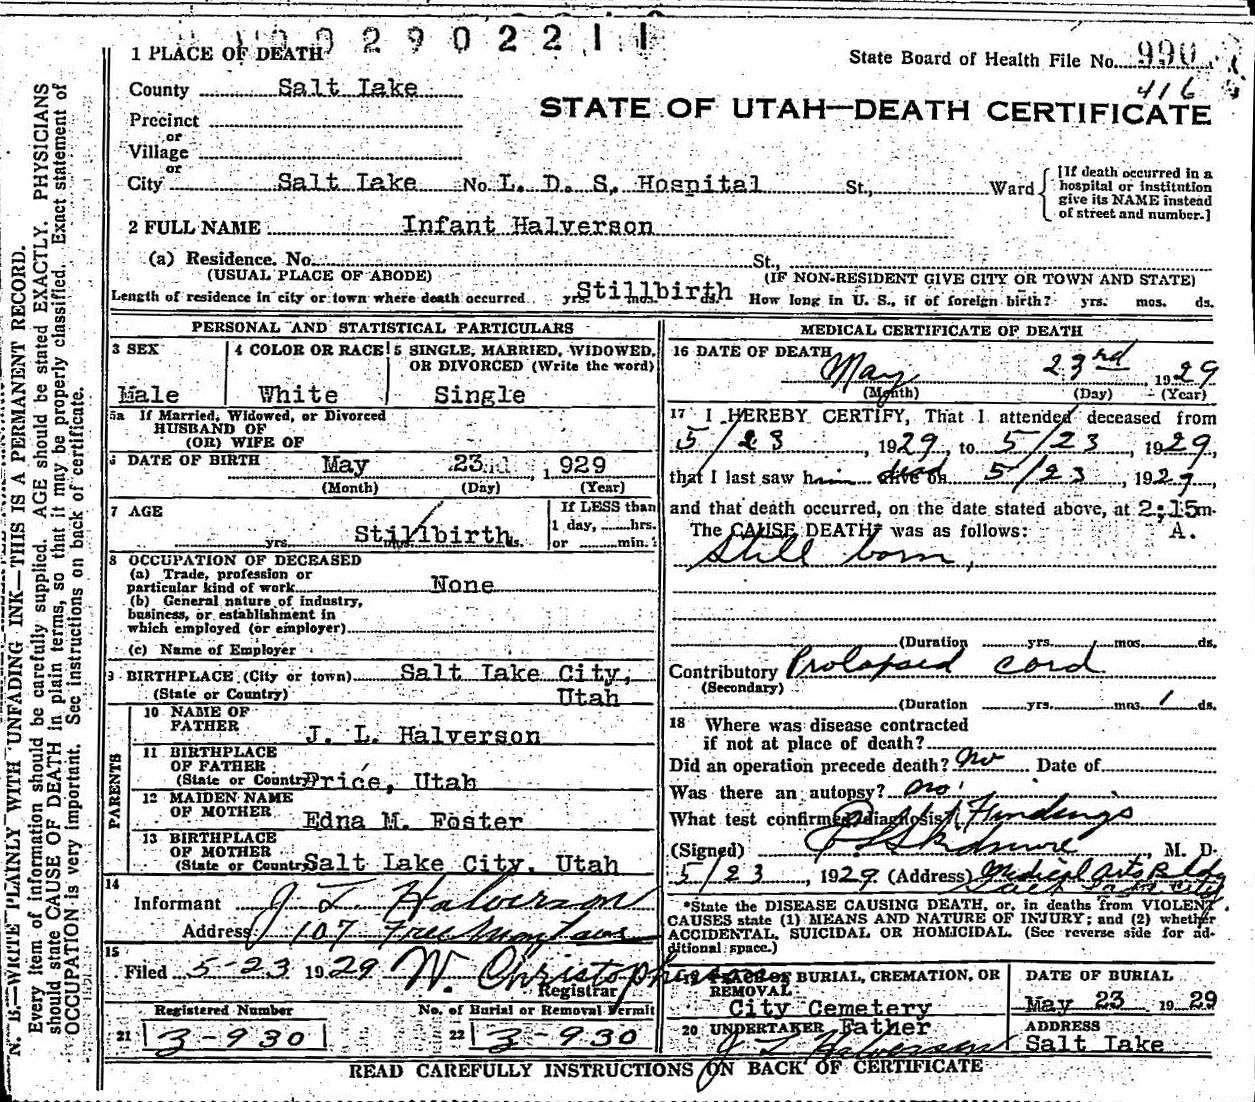 0 0 2 9 0 2 2 1 1
1 PLACE OF DEATH
State Board of Health File No. 990
416
County Salt Lake
STATE OF UTAH—DEATH CERTIFICATE
Precinct
or
Village
or
City Salt Lake No. L. D. S. Hospital St., Ward
[If death occurred in a
hospital or institution
give its NAME instead
of street and number.]
2 FULL NAME Infant Halverson
(a) Residence. No. St.,
(USUAL PLACE OF ABODE) (IF NON-RESIDENT GIVE CITY OR TOWN AND STATE)
Length of residence in city or town where death occurred yrs. Stillbirth mos. ds. How long in U. S., if of foreign birth? yrs. mos. ds.
PERSONAL AND STATISTICAL PARTICULARS
3 SEX
Male
4 COLOR OR RACE
White
5 SINGLE, MARRIED, WIDOWED,
OR DIVORCED (Write the word)
Single
5a If Married, Widowed, or Divorced
HUSBAND OF
(OR) WIFE OF
6 DATE OF BIRTH May 23rd 1,929
(Month) (Day) (Year)
7 AGE
yrs. Stillbirth mos. ds.
If LESS than
1 day, hrs.
or min.
8 OCCUPATION OF DECEASED
(a) Trade, profession or
particular kind of work None
(b) General nature of industry,
business, or establishment in
which employed (or employer)
(c) Name of Employer
9 BIRTHPLACE (City or town) Salt Lake City,
(State or Country) Utah
PARENTS
10 NAME OF
FATHER J. L. Halverson
11 BIRTHPLACE
OF FATHER
(State or Country) Price, Utah
12 MAIDEN NAME
OF MOTHER Edna M. Foster
13 BIRTHPLACE
OF MOTHER
(State or Country) Salt Lake City, Utah
14
Informant J L Halverson
Address 107
15
Filed 5-23 1929 W. Christopherson
Registrar
Registered Number
21 3-930
No. of Burial or Removal Permit
22 3-930
MEDICAL CERTIFICATE OF DEATH
16 DATE OF DEATH
May 23rd 1929
(Month) (Day) (Year)
17 I HEREBY CERTIFY, That I attended deceased from
5/23, 1929, to 5/23, 1929,
that I last saw him alive on dead 5/23, 1929,
and that death occurred, on the date stated above, at 2:15 m.
The CAUSE DEATH* was as follows: A.
Still born,
(Duration yrs. mos. ds.
Contributory Prolapsed cord
(Secondary)
(Duration yrs. mos. 1 ds.
18 Where was disease contracted
if not at place of death?
Did an operation precede death? no Date of
Was there an autopsy? no
What test confirmed diagnosis? Findings
(Signed) Skidmore M. D.
5/23, 1929 (Address) Medical Arts Bldg
Salt Lake City
*State the DISEASE CAUSING DEATH, or, in deaths from VIOLENT
CAUSES state (1) MEANS AND NATURE OF INJURY; and (2) whether
ACCIDENTAL, SUICIDAL OR HOMICIDAL. (See reverse side for ad-
ditional space.)
19 PLACE OF BURIAL, CREMATION, OR
REMOVAL
City Cemetery
DATE OF BURIAL
May 23 1929
20 UNDERTAKER Father
J L Halverson
ADDRESS
Salt Lake
READ CAREFULLY INSTRUCTIONS ON BACK OF CERTIFICATE
N. B.—WRITE PLAINLY WITH UNFADING INK—THIS IS A PERMANENT RECORD.
Every item of information should be carefully supplied. AGE should be stated EXACTLY. PHYSICIANS
should state CAUSE OF DEATH in plain terms, so that it may be properly classified. Exact statement of
OCCUPATION is very important. See instructions on back of certificate.